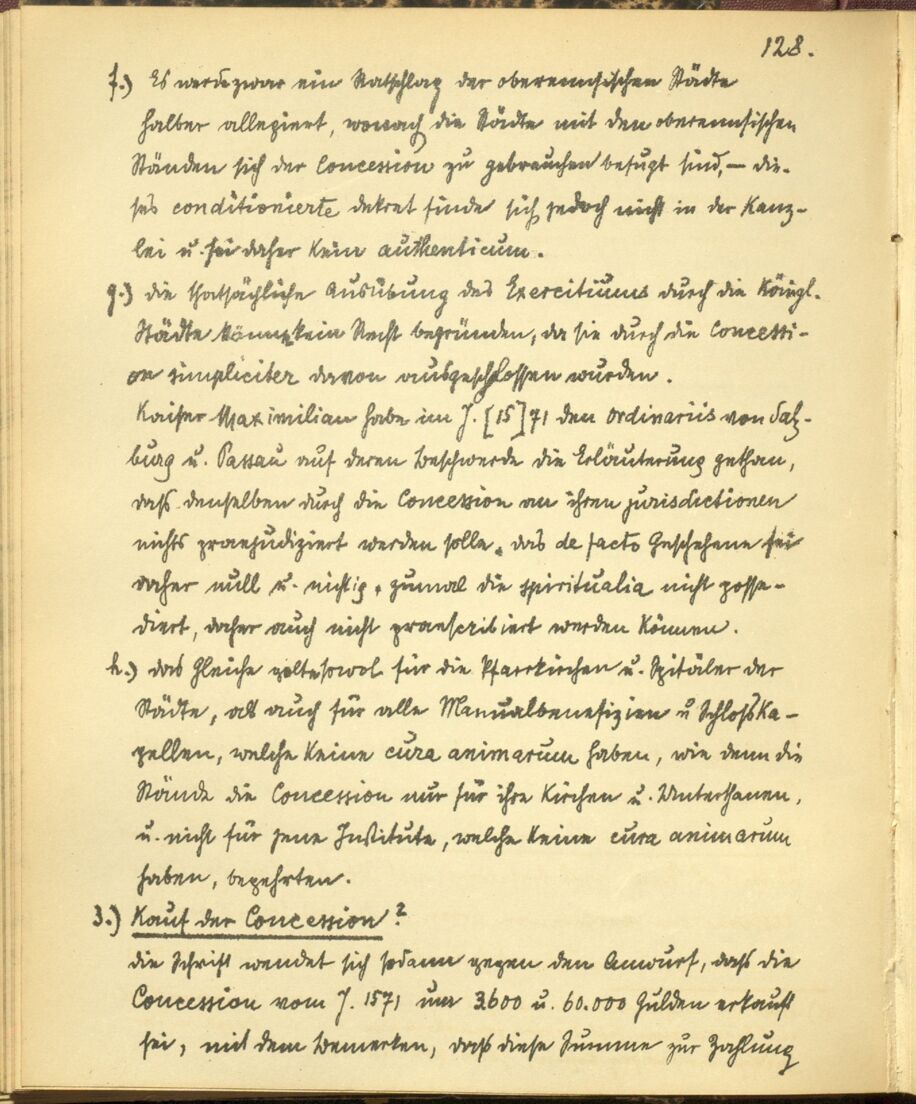 128.
f.) Es werde zwar ein Ratschlag der oberennsischen Städte
halber allegiert, wonach die Städte mit den oberennsischen
Ständen sich der Concession zu gebrauchen befugt sind, – die-
ses conditionierte dekret finde sich jedoch nicht in der Kanz-
lei u. sei daher kein authenticum.
g.) die thatsächliche Ausübung des Exercitiums durch die Königl.
Städte könne kein Recht begründen, da sie durch die Concessi-
on simpliciter davon ausgeschlossen wurden.
Kaiser Maximilian habe im J. [15]71 den ordinariis von Salz-
burg u. Passau auf deren Beschwerde die Erläuterung gethan,
daß denselben durch die Concession an ihren jurisdictionen
nichts praejudiziert werden solle. das de facto Geschehene sei
daher null u. nichtig, zumal die spiritualia nicht posse-
diert, daher auch nicht praescribiert werden können.
h.) das Gleiche gelte sowol für die Pfarrkirchen u. Spitäler der
Städte, als auch für alle Manualbenefizien u Schloßka-
pellen, welche keine cura animarum haben, wie denn die
Stände die Concession nur für ihre Kirchen u. Unterthanen,
u. nicht für jene Institute, welche keine cura animarum
haben, begehrten.
3.) Kauf der Concession?
die Schrift wendet sich sodann gegen den Anwurf, daß die
Concession vom J. 1571 um 3.600 u. 60.000 Gulden erkauft
sei, mit dem Bemerken, daß diese Summe zur Zahlung